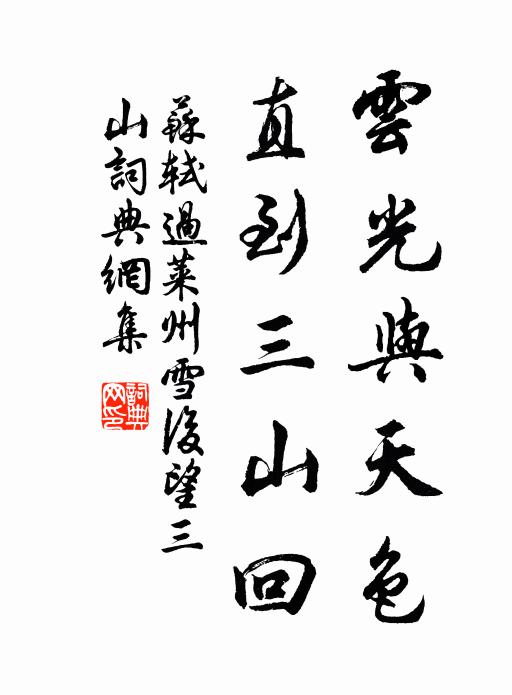 雲光與天色
直到三山回
蘇軾過萊州雪後望三
山詞典網集
詞典
网印